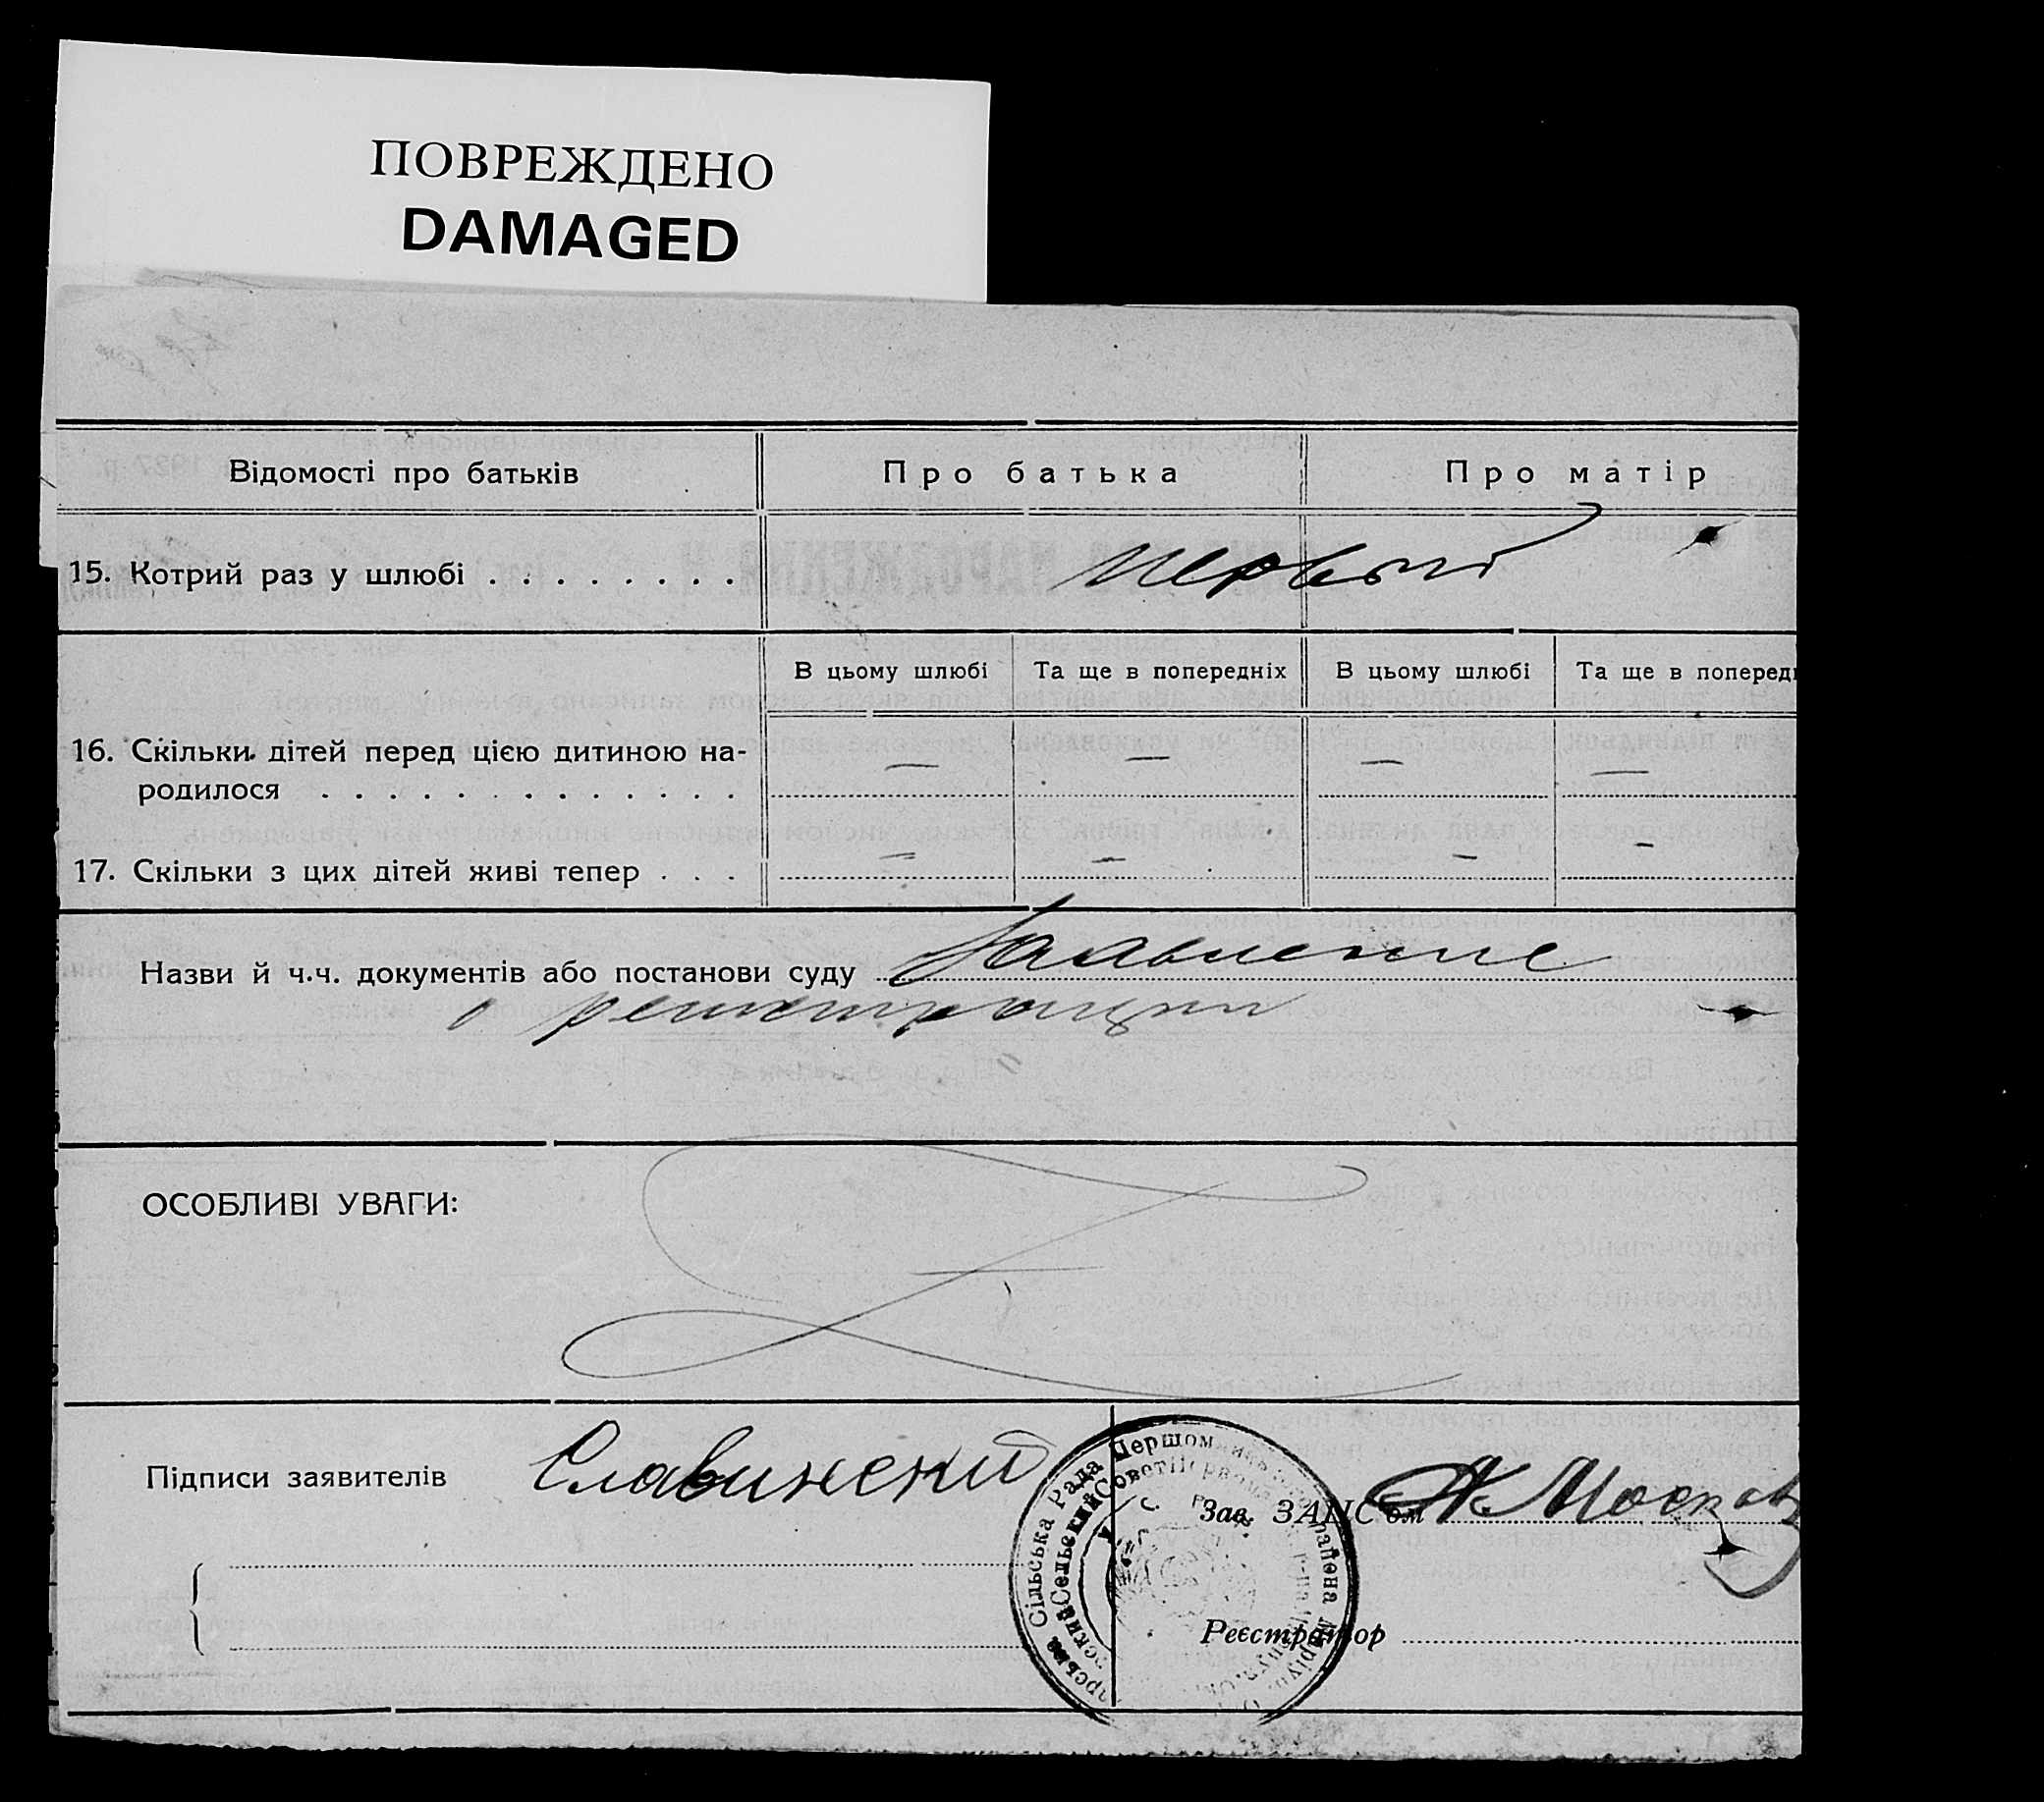 ПОВРЕЖДЕНО
DAMAGED
Відомості про батьків
Про батька
Про матір
15. Котрий раз у шлюбі . . . . . . . .
первый
В цьому шлюбі
Та ще в попередніх
В цьому шлюбі
Та ще в поперед
16. Скільки дітей перед цією дитиною на-
— — — —
родилося . . . . . . . . . . . . .
17. Скільки з цих дітей живі тепер . . .
— — — —
Назви й ч.ч. документів або постанови суду Заявление
о регистрации
ОСОБЛИВІ УВАГИ:
Підписи заявителів
Славинский
Зав. ЗАГС'ом
Реєстратор
Сільська Рада Першом
Сельский Совет